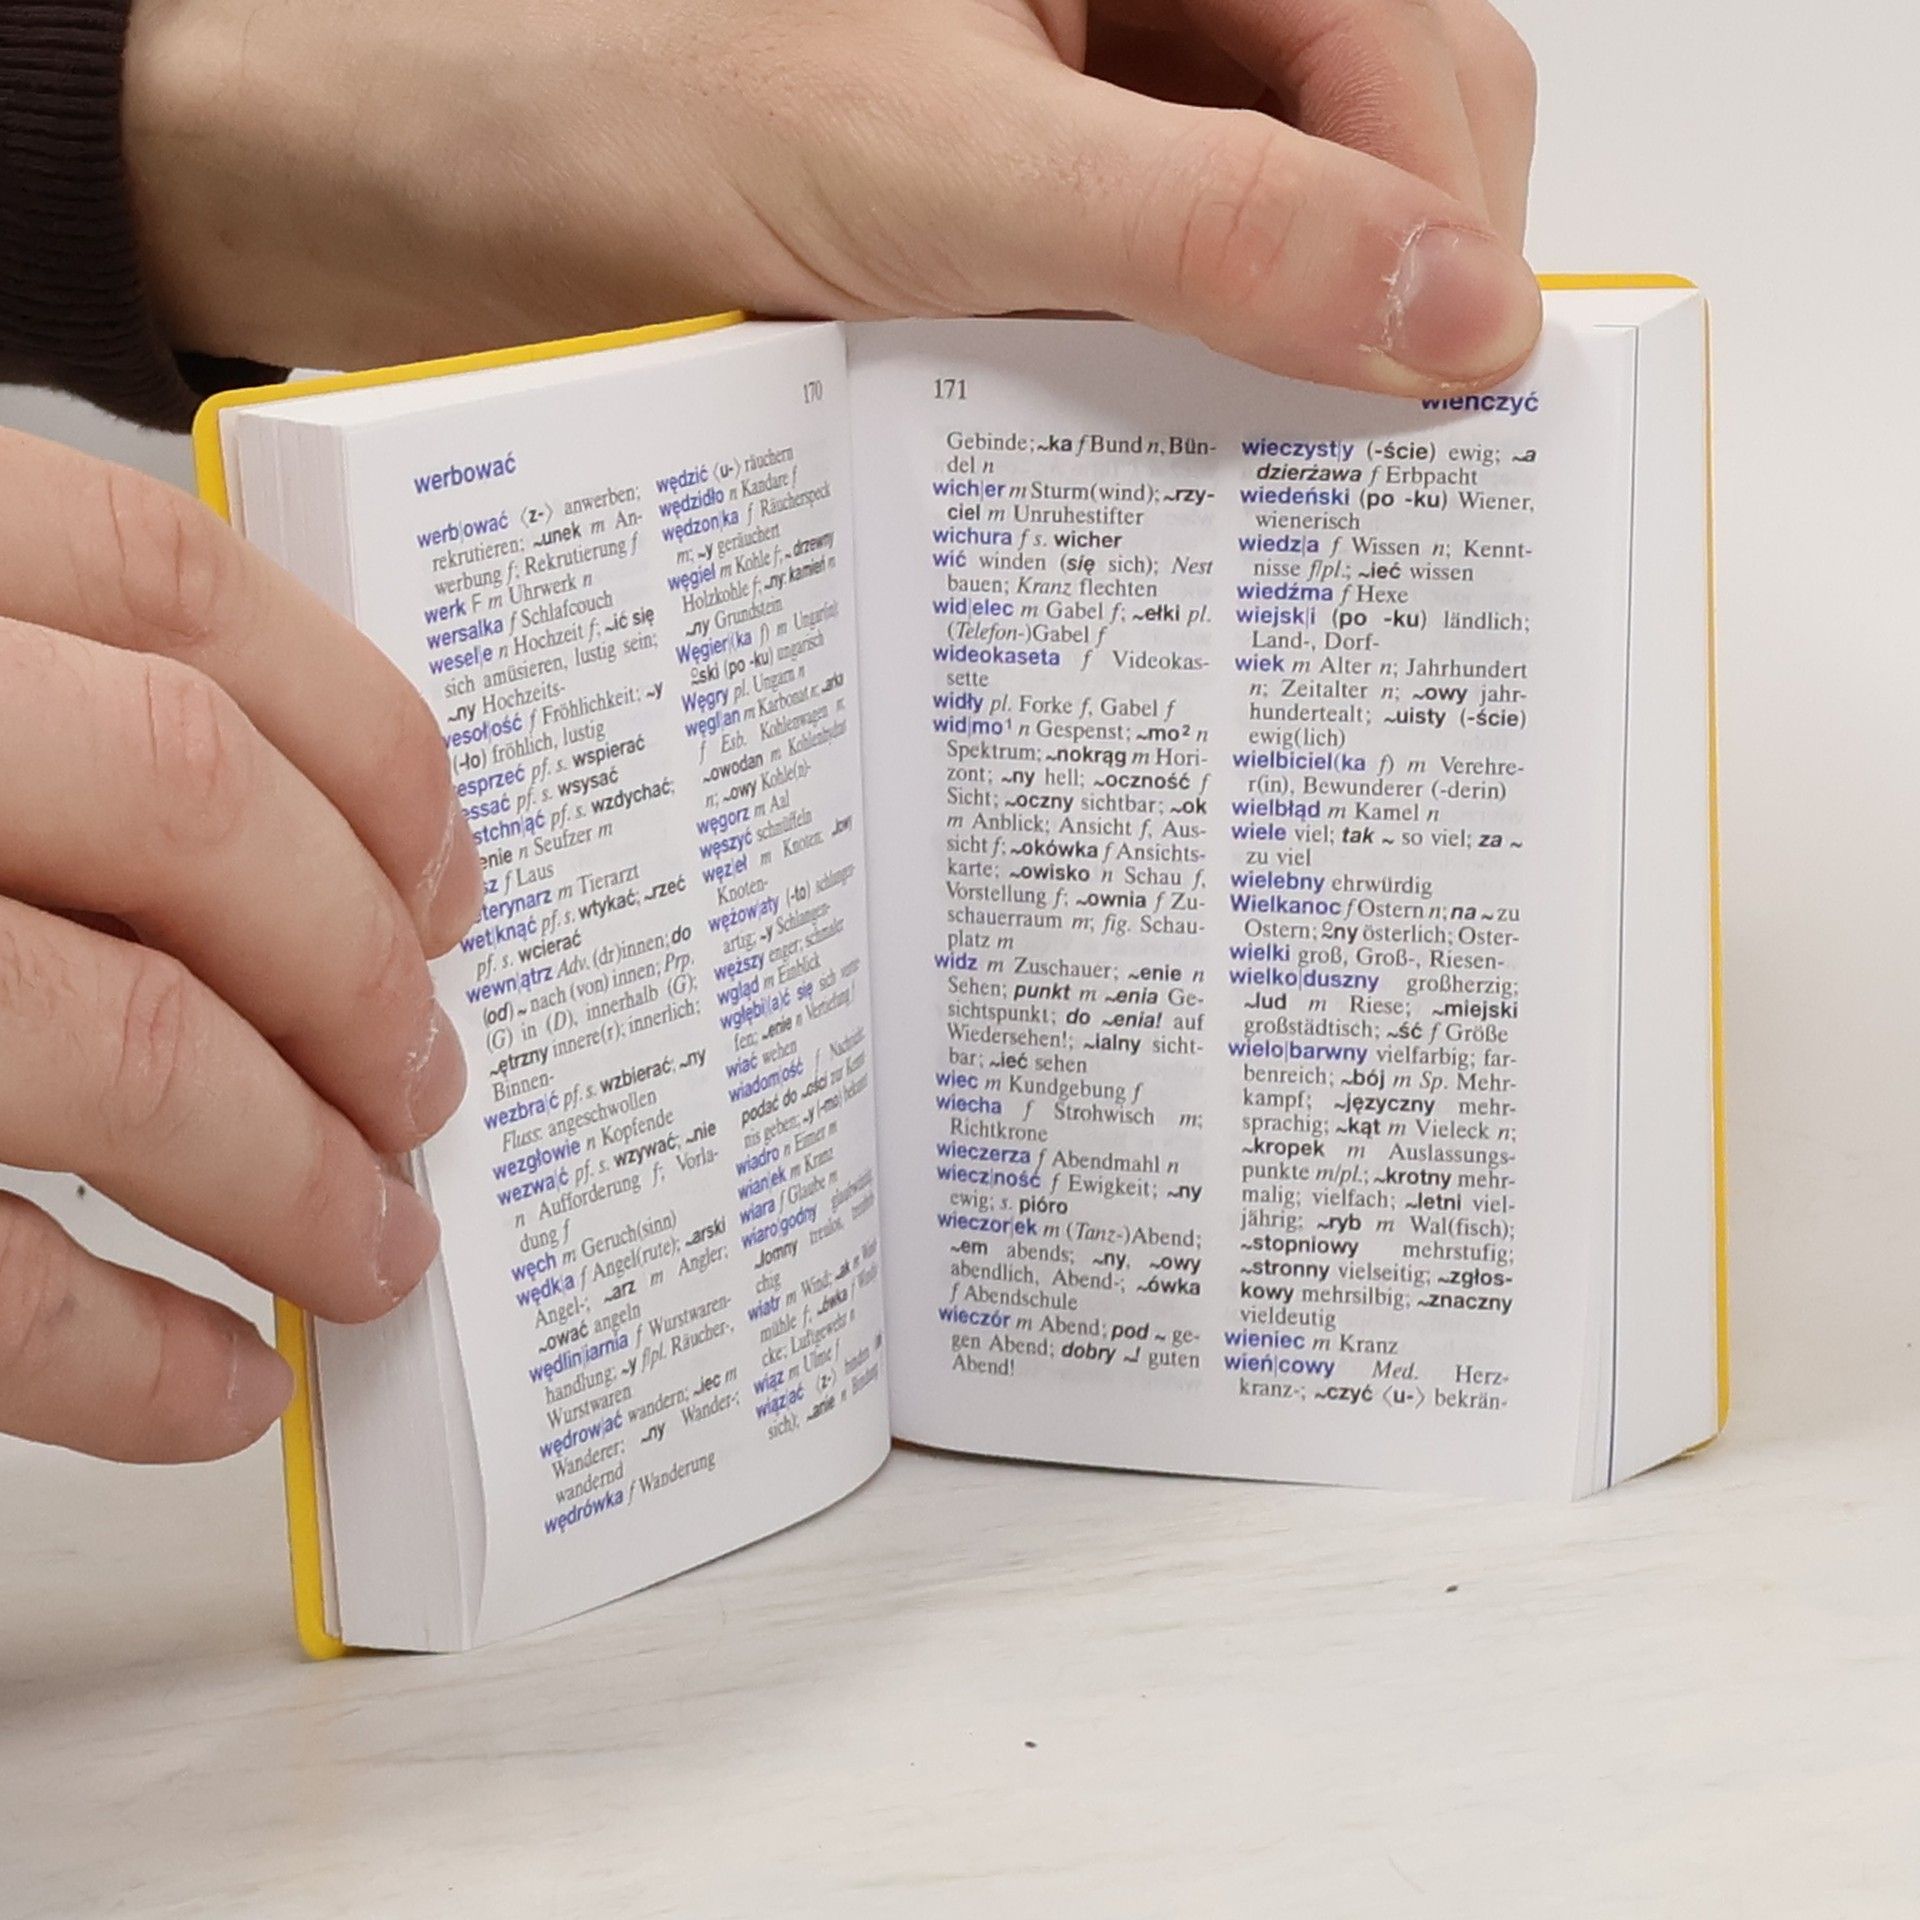 170
werbować
werb|ować ⟨z-⟩ anwerben;
rekrutieren; ~unek m An-
werbung f; Rekrutierung f
werk F m Uhrwerk n
wersalka f Schlafcouch
wesel|e n Hochzeit f; ~ić się
sich amüsieren, lustig sein;
~ny Hochzeits-
wesoł|ość f Fröhlichkeit; ~y
(-ło) fröhlich, lustig
esprzeć pf. s. wspierać
essać pf. s. wsysać
stchn|ąć pf. s. wzdychać;
enie n Seufzer m
sz f Laus
eterynarz m Tierarzt
wet|knąć pf. s. wtykać; ~rzeć
pf. s. wcierać
wewn|ątrz Adv. (dr)innen; do
(od) ~ nach (von) innen; Prp.
(G) in (D), innerhalb (G);
~ętrzny innere(r); innerlich;
Binnen-
wezbra|ć pf. s. wzbierać; ~ny
Fluss: angeschwollen
wezgłowie n Kopfende
wezwa|ć pf. s. wzywać; ~nie
n Aufforderung f; Vorla-
dung f
węch m Geruch(sinn)
wędk|a f Angel(rute); ~arski
Angel-; ~arz m Angler;
~ować angeln
wędlin|iarnia f Wurstwaren-
handlung; ~y f/pl. Räucher-,
Wurstwaren
wędrow|ać wandern; ~iec m
Wanderer; ~ny Wander-;
wandernd
wędrówka f Wanderung
wędzić ⟨u-⟩ räuchern
wędzidło n Kandare f
wędzon|ka f Räucherspeck
m; ~y geräuchert
węgiel m Kohle f; ~ drzewny
Holzkohle f; ~ny: kamień n
~ny Grundstein
Węgier|(ka f) m Ungar(in);
~ski (po -ku) ungarisch
Węgry pl. Ungarn n
węgl|an m Karbonat n; ~arka
f Esb. Kohlenwagen m;
~owodan m Kohlenhydrat
n; ~owy Kohle(n)-
węgorz m Aal
węszyć schnüffeln
węz|eł m Knoten; ~łowy
Knoten-
wężow|aty (-to) schlangen-
artig; ~y Schlangen-
węższy enger; schmaler
wgląd m Einblick
wgłębi|(a)ć się sich vertie-
fen; ~enie n Vertiefung f
wiać wehen
wiadom|ość f Nachricht;
podać do ~ości zur Kennt-
nis geben; ~y (-mo) bekannt
wiadro n Eimer m
wian|ek m Kranz
wiara f Glaube m
wiaro|godny glaubwürdig;
~łomny treulos,
chig
wiatr m Wind; ~ak m Wind-
mühle f; ~ówka f Windja-
cke; Luftgewehr n
wiąz m Ulme f
wiąz|ać ⟨z-⟩ binden (się
sich); ~anie n Bindung
171
wieńczyć
Gebinde; ~ka f Bund n, Bün-
del n
wich|er m Sturm(wind); ~rzy-
ciel m Unruhestifter
wichura f s. wicher
wić winden (się sich); Nest
bauen; Kranz flechten
wid|elec m Gabel f; ~ełki pl.
(Telefon-)Gabel f
wideokaseta f Videokas-
sette
widły pl. Forke f, Gabel f
wid|mo¹ n Gespenst; ~mo² n
Spektrum; ~nokrąg m Hori-
zont; ~ny hell; ~oczność f
Sicht; ~oczny sichtbar; ~ok
m Anblick; Ansicht f, Aus-
sicht f; ~okówka f Ansichts-
karte; ~owisko n Schau f,
Vorstellung f; ~ownia f Zu-
schauerraum m; fig. Schau-
platz m
widz m Zuschauer; ~enie n
Sehen; punkt m ~enia Ge-
sichtspunkt; do ~enia! auf
Wiedersehen!; ~ialny sicht-
bar; ~ieć sehen
wiec m Kundgebung f
wiecha f Strohwisch m;
Richtkrone
wieczerza f Abendmahl n
wiecz|ność f Ewigkeit; ~ny
ewig; s. pióro
wieczor|ek m (Tanz-)Abend;
~em abends; ~ny, ~owy
abendlich, Abend-; ~ówka
f Abendschule
wieczór m Abend; pod ~ ge-
gen Abend; dobry ~! guten
Abend!
wieczyst|y (-ście) ewig; ~a
dzierżawa f Erbpacht
wiedeński (po -ku) Wiener,
wienerisch
wiedz|a f Wissen n; Kennt-
nisse f/pl.; ~ieć wissen
wiedźma f Hexe
wiejsk|i (po -ku) ländlich;
Land-, Dorf-
wiek m Alter n; Jahrhundert
n; Zeitalter n; ~owy jahr-
hundertealt; ~uisty (-ście)
ewig(lich)
wielbiciel(ka f) m Verehre-
r(in), Bewunderer (-derin)
wielbłąd m Kamel n
wiele viel; tak ~ so viel; za ~
zu viel
wielebny ehrwürdig
Wielkanoc f Ostern n; na ~ zu
Ostern; ~ny österlich; Oster-
wielki groß, Groß-, Riesen-
wielko|duszny großherzig;
~lud m Riese; ~miejski
großstädtisch; ~ść f Größe
wielo|barwny vielfarbig; far-
benreich; ~bój m Sp. Mehr-
kampf; ~języczny mehr-
sprachig; ~kąt m Vieleck n;
~kropek m Auslassungs-
punkte m/pl.; ~krotny mehr-
malig; vielfach; ~letni viel-
jährig; ~ryb m Wal(fisch);
~stopniowy mehrstufig;
~stronny vielseitig; ~zgłos-
kowy mehrsilbig; ~znaczny
vieldeutig
wieniec m Kranz
wień|cowy Med. Herz-
kranz-; ~czyć ⟨u-⟩ bekrän-